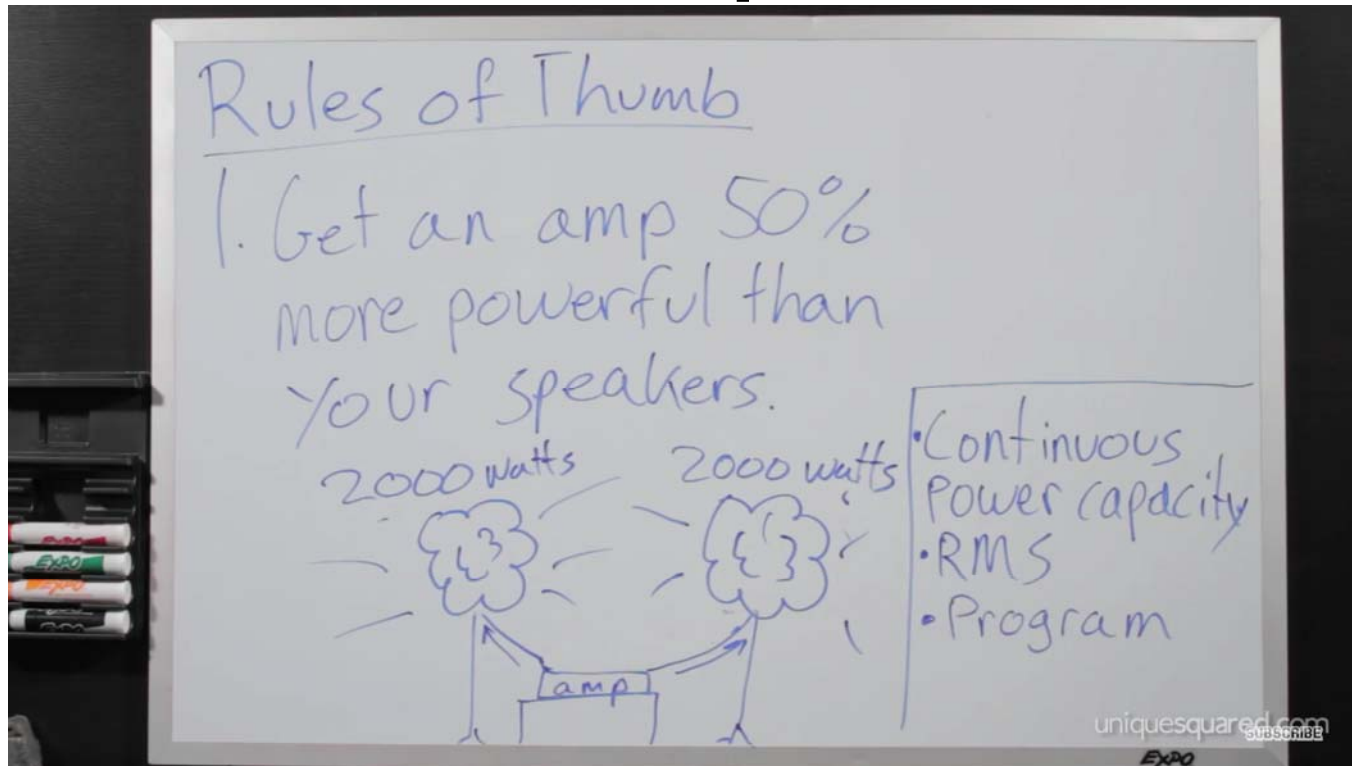 Rules of Thumb
1. Get an amp 50%
more powerful than
your speakers.
2000 watts
2000 watts
amp
• Continuous
Power capacity
• RMS
• Program
EXPO
EXPO
uniquesquared.com
SUBSCRIBE
EXPO